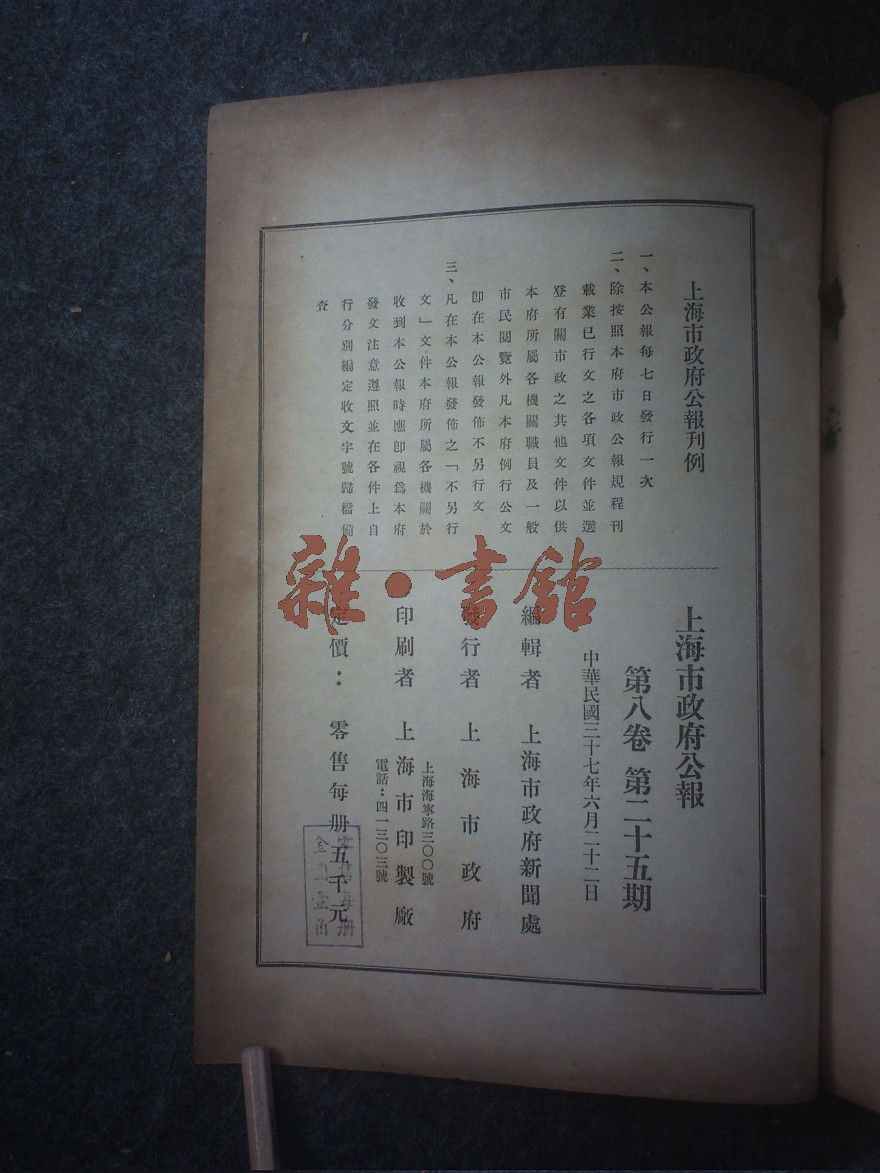 上海市政府公報刊例
一、本公報每七日發行一次
二、除按照本府市政公報規程刊
載業已行文之各項文件並選
登有關市政之其他文件以供
本府所屬各機關職員及一般
市民閱覽外凡本府例行公文
卽在本公報發佈不另行文
三、凡在本公報發佈之「不另行
文」文件本府所屬各機關於
收到本公報時應卽視爲本府
發文注意遵照並在各件上自
行分別編定收文字號歸檔備
查
上海市政府公報
第八卷 第二十五期
中華民國三十七年六月二十二日
編輯者 上海市政府新聞處
發行者 上海市政府
印刷者 上海市印製廠
上海海寧路三〇〇號
電話：四一三〇三號
定價： 零售每册五千元
零售每册
金圓壹角
雜·書館